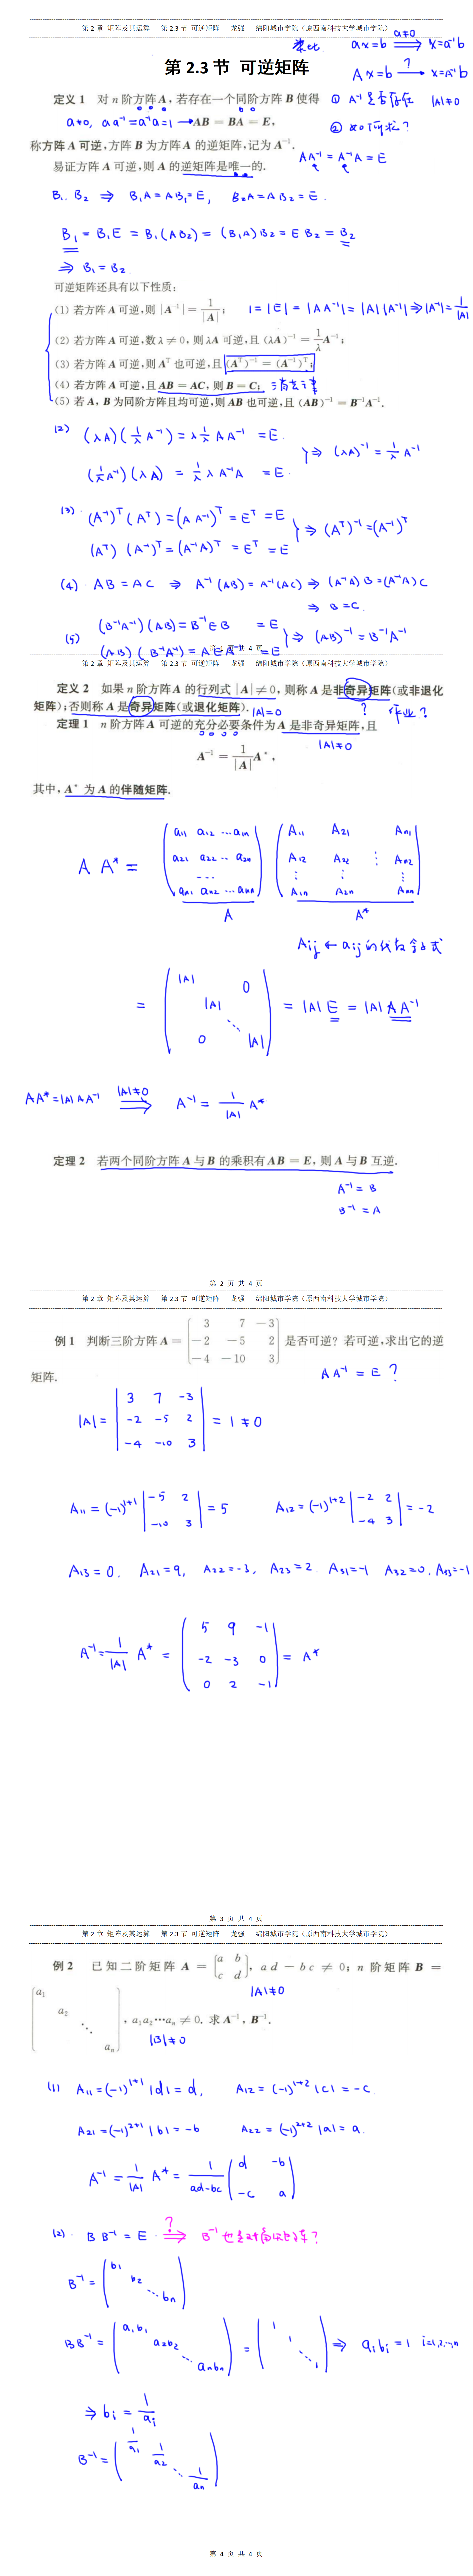 第 2 章 矩阵及其运算 第 2.3 节 可逆矩阵 龙强 绵阳城市学院（原西南科技大学城市学院）
类比 ax=b ⟹(a≠0) x=a⁻¹b
第 2.3 节 可逆矩阵
Ax=b →(?) x=A⁻¹b
定义 1 对 n 阶方阵 A, 若存在一个同阶方阵 B 使得
① A⁻¹是否存在 |A|≠0
a≠0, aa⁻¹=a⁻¹a=1 → AB = BA = E,
② 如何求?
称方阵 A 可逆, 方阵 B 为方阵 A 的逆矩阵, 记为 A⁻¹.
AA⁻¹=A⁻¹A=E
易证方阵 A 可逆, 则 A 的逆矩阵是唯一的.
B₁. B₂ ⇒ B₁A=AB₁=E, B₂A=AB₂=E.
B₁=B₁E=B₁(AB₂)=(B₁A)B₂=EB₂=B₂
⇒ B₁=B₂
可逆矩阵还具有以下性质:
(1) 若方阵 A 可逆, 则 |A⁻¹| = 1/|A|; 1=|E|=|AA⁻¹|=|A||A⁻¹|⇒|A⁻¹|=1/|A|
(2) 若方阵 A 可逆, 数 λ ≠ 0, 则 λA 可逆, 且 (λA)⁻¹ = 1/λ A⁻¹;
(3) 若方阵 A 可逆, 则 Aᵀ 也可逆, 且 (Aᵀ)⁻¹ = (A⁻¹)ᵀ;
(4) 若方阵 A 可逆, 且 AB = AC, 则 B = C; 消去律
(5) 若 A, B 为同阶方阵且均可逆, 则 AB 也可逆, 且 (AB)⁻¹ = B⁻¹A⁻¹.
(2) (λA)(1/λ A⁻¹)=λ 1/λ AA⁻¹ =E.
(1/λ A⁻¹)(λA) = 1/λ λ A⁻¹A =E. } ⇒ (λA)⁻¹ = 1/λ A⁻¹
(3). (A⁻¹)ᵀ(Aᵀ)=(AA⁻¹)ᵀ=Eᵀ=E
(Aᵀ)(A⁻¹)ᵀ=(A⁻¹A)ᵀ=Eᵀ=E } ⇒ (Aᵀ)⁻¹=(A⁻¹)ᵀ
(4). AB=AC ⇒ A⁻¹(AB)=A⁻¹(AC) ⇒ (A⁻¹A)B=(A⁻¹A)C
⇒ B=C.
(5) (B⁻¹A⁻¹)(AB)=B⁻¹EB =E
(AB)(B⁻¹A⁻¹)=AEA⁻¹ =E } ⇒ (AB)⁻¹=B⁻¹A⁻¹
第 1 页 共 4 页
第 2 章 矩阵及其运算 第 2.3 节 可逆矩阵 龙强 绵阳城市学院（原西南科技大学城市学院）
定义 2 如果 n 阶方阵 A 的行列式 |A| ≠ 0, 则称 A 是非奇异矩阵(或非退化
矩阵); 否则称 A 是奇异矩阵(或退化矩阵). |A|=0 ? 作业?
定理 1 n 阶方阵 A 可逆的充分必要条件为 A 是非奇异矩阵, 且
|A|≠0
A⁻¹ = 1/|A| A*,
其中, A* 为 A 的伴随矩阵.
A A* = (a₁₁ a₁₂ … a₁ₙ; a₂₁ a₂₂ … a₂ₙ; …; aₙ₁ aₙ₂ … aₙₙ) (A₁₁ A₂₁ Aₙ₁; A₁₂ A₂₂ ⋮ Aₙ₂; ⋮ ⋮ ⋮; A₁ₙ A₂ₙ Aₙₙ)
A A*
Aᵢⱼ ← aᵢⱼ 的代数余子式
= (|A| 0; |A|; ⋱; 0 |A|) = |A|E = |A|AA⁻¹
AA*=|A|AA⁻¹ ⟹(|A|≠0) A⁻¹= 1/|A| A*
定理 2 若两个同阶方阵 A 与 B 的乘积有 AB = E, 则 A 与 B 互逆.
A⁻¹=B
B⁻¹=A
第 2 页 共 4 页
第 2 章 矩阵及其运算 第 2.3 节 可逆矩阵 龙强 绵阳城市学院（原西南科技大学城市学院）
例 1 判断三阶方阵 A = [3 7 −3; −2 −5 2; −4 −10 3] 是否可逆? 若可逆, 求出它的逆
矩阵.
AA⁻¹=E ?
|A|= |3 7 -3; -2 -5 2; -4 -10 3| = 1 ≠0
A₁₁=(-1)¹⁺¹ |-5 2; -10 3| =5 A₁₂=(-1)¹⁺² |-2 2; -4 3| =-2
A₁₃=0. A₂₁=9, A₂₂=-3, A₂₃=2. A₃₁=-1 A₃₂=0, A₃₃=-1
A⁻¹= 1/|A| A* = (5 9 -1; -2 -3 0; 0 2 -1) = A*
第 3 页 共 4 页
第 2 章 矩阵及其运算 第 2.3 节 可逆矩阵 龙强 绵阳城市学院（原西南科技大学城市学院）
例 2 已知二阶矩阵 A = [a b; c d], ad − bc ≠ 0; n 阶矩阵 B =
|A|≠0
[a₁; a₂; ⋱; aₙ], a₁a₂⋯aₙ ≠ 0. 求 A⁻¹, B⁻¹.
|B|≠0
(1) A₁₁=(-1)¹⁺¹|d|=d, A₁₂=(-1)¹⁺²|c|=-c
A₂₁=(-1)²⁺¹|b|=-b A₂₂=(-1)²⁺²|a|=a.
A⁻¹= 1/|A| A* = 1/(ad-bc) (d -b; -c a)
(2). BB⁻¹=E ⟹(?) B⁻¹也是对角矩阵?
B⁻¹= (b₁; b₂; ⋱ bₙ)
BB⁻¹= (a₁b₁; a₂b₂; ⋱ aₙbₙ) = (1; 1; ⋱ 1) ⇒ aᵢbᵢ=1 i=1,2,…,n
⇒ bᵢ= 1/aᵢ
B⁻¹= (1/a₁; 1/a₂; ⋱ 1/aₙ)
第 4 页 共 4 页